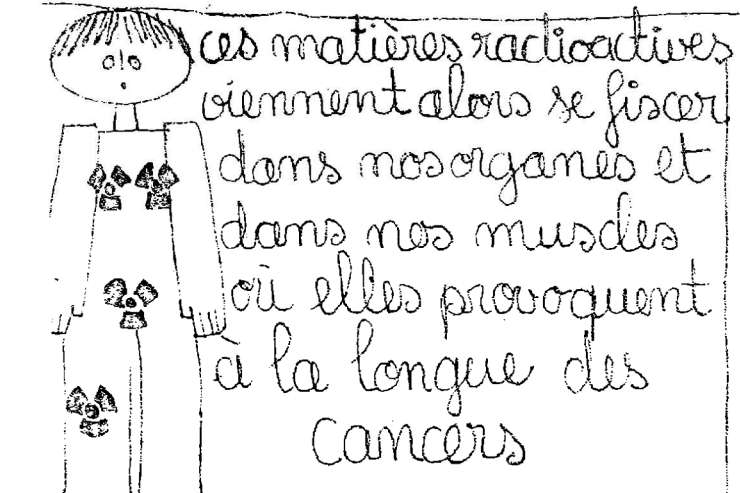 ces matières radioactives
viennent alors se fiscer
dans nos organes et
dans nos muscles
où elles provoquent
à la longue des
cancers